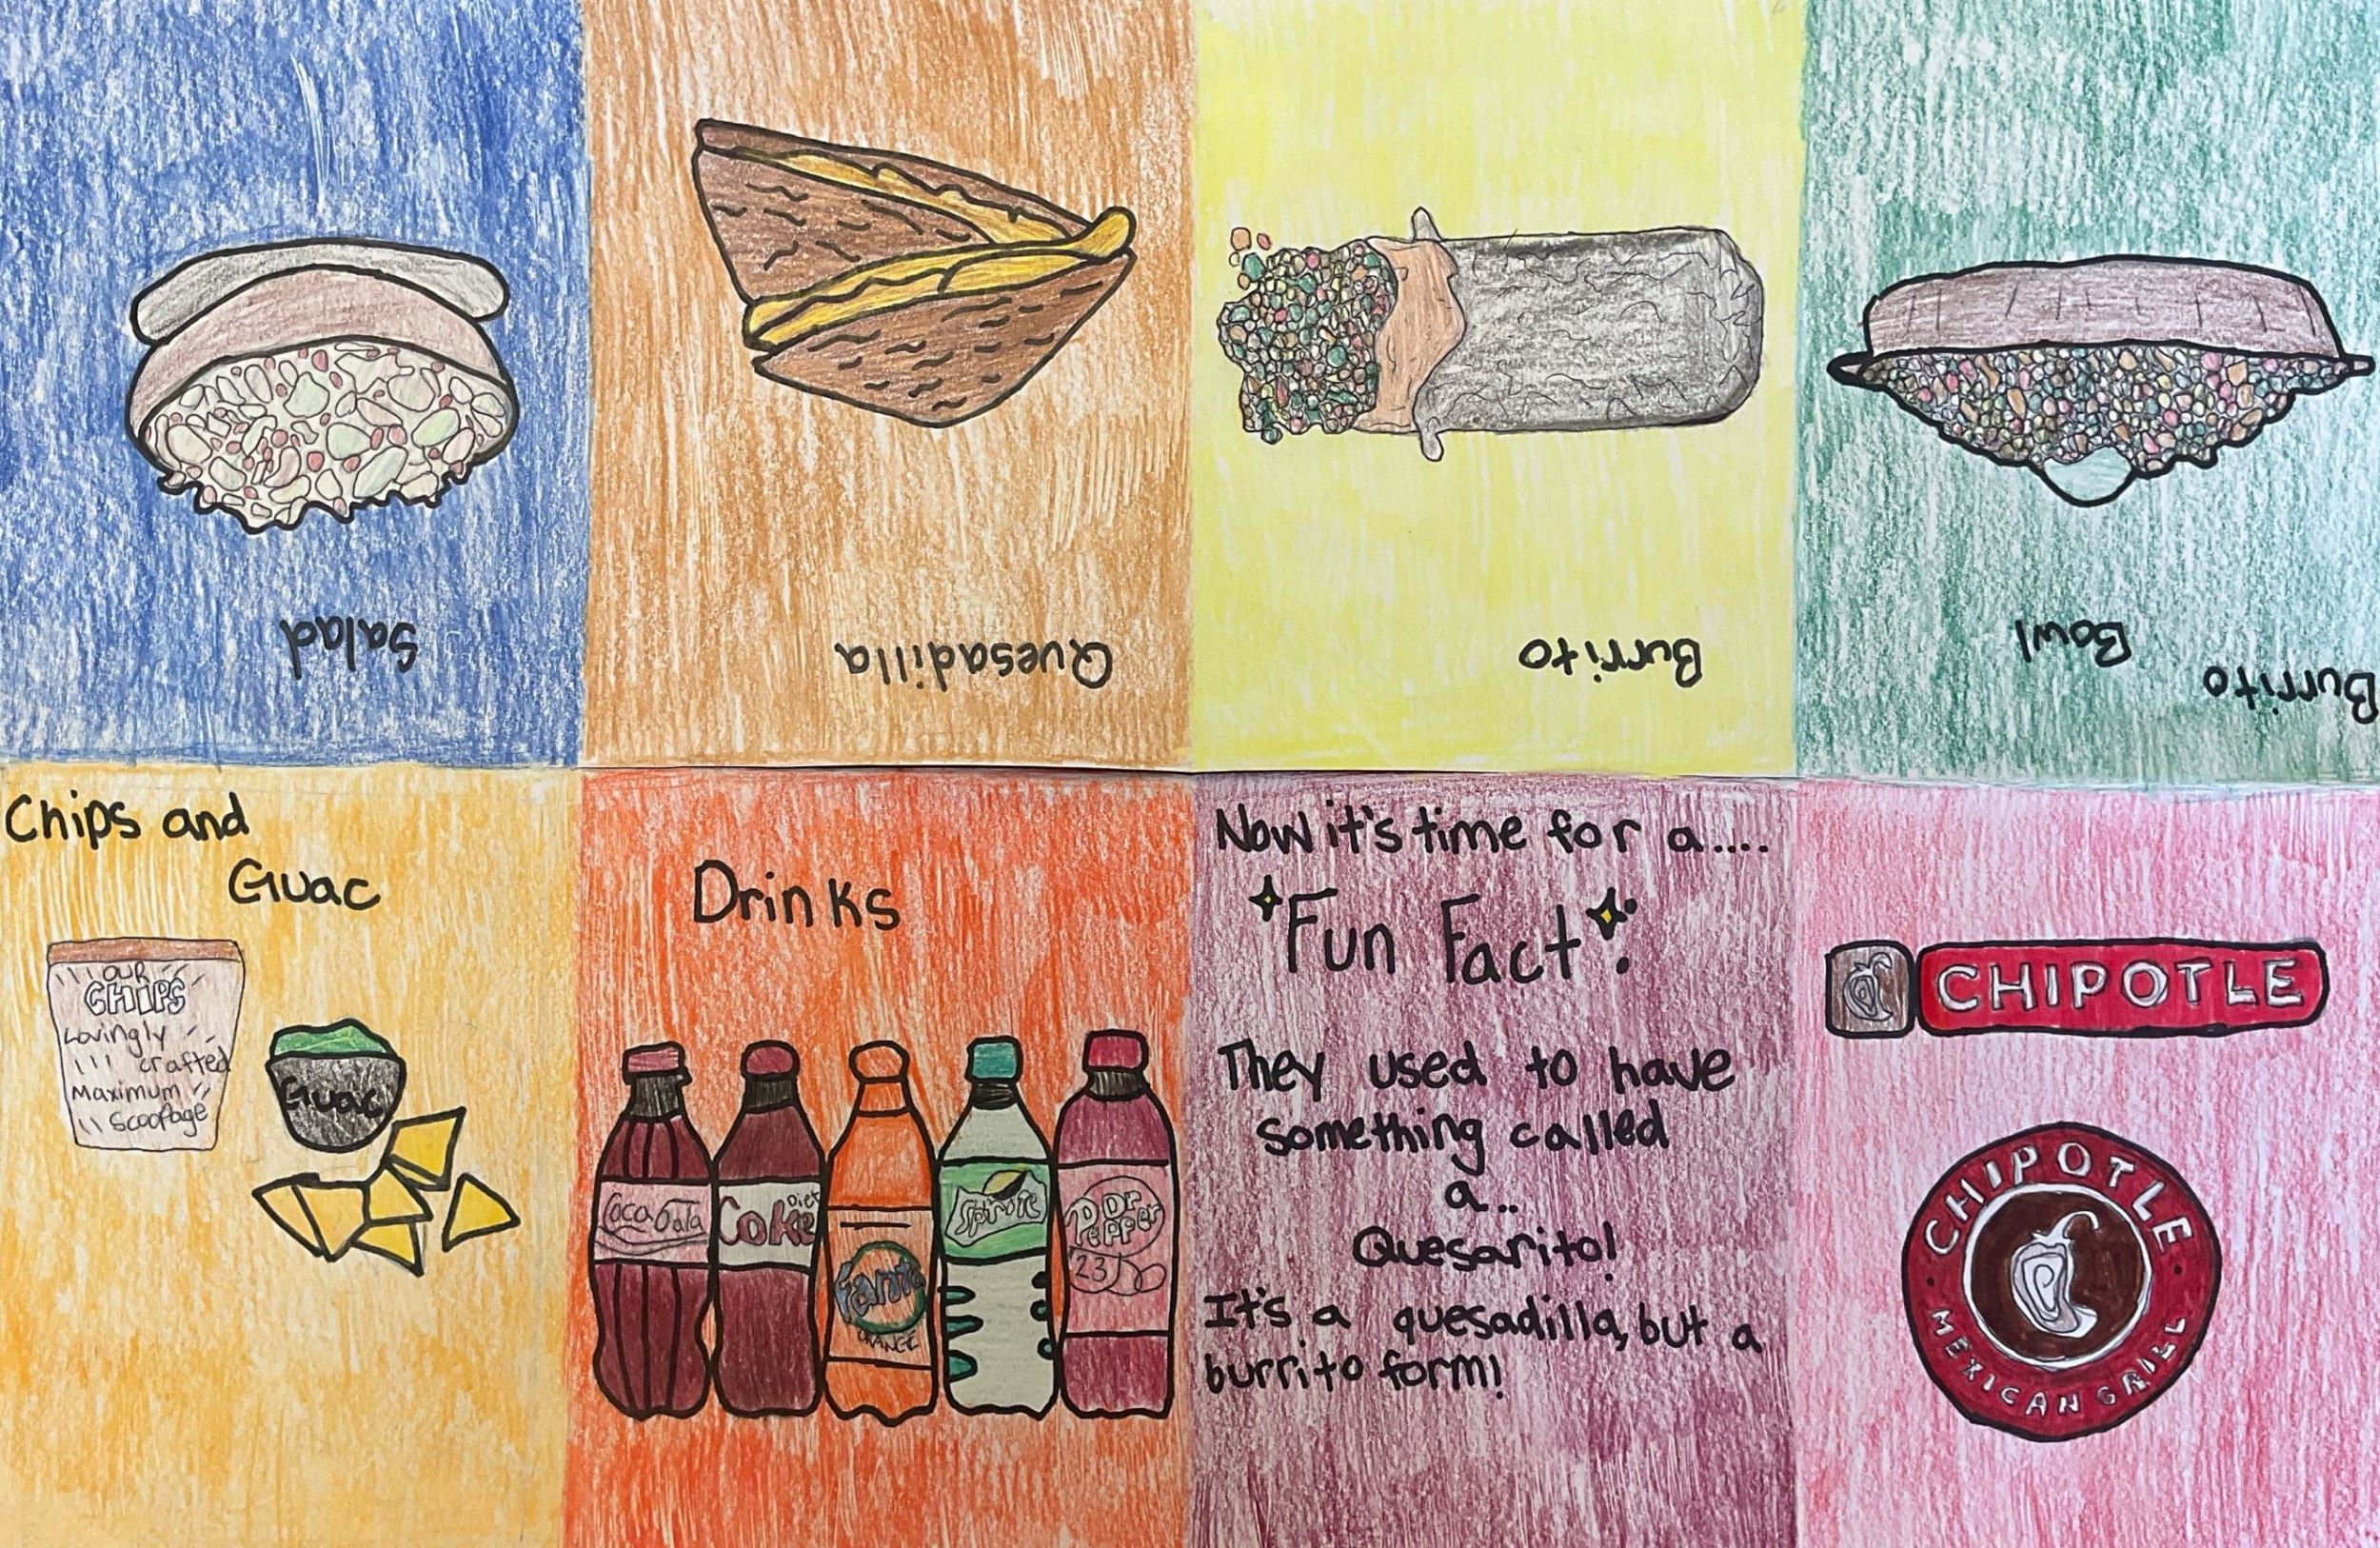 Salad
Quesadilla
Burrito
Burrito
Bowl
Chips and
Guac
OUR
CHIPS
Lovingly
crafted
Maximum
Scoopage
Guac
Drinks
Coca Cola
Diet
Coke
Fanta
ORANGE
Sprite
Dr
Pepper
23
Now it's time for a....
Fun Fact!
They used to have
something called
a..
Quesarito!
It's a quesadilla, but a
burrito form!
CHIPOTLE
CHIPOTLE
MEXICAN GRILL